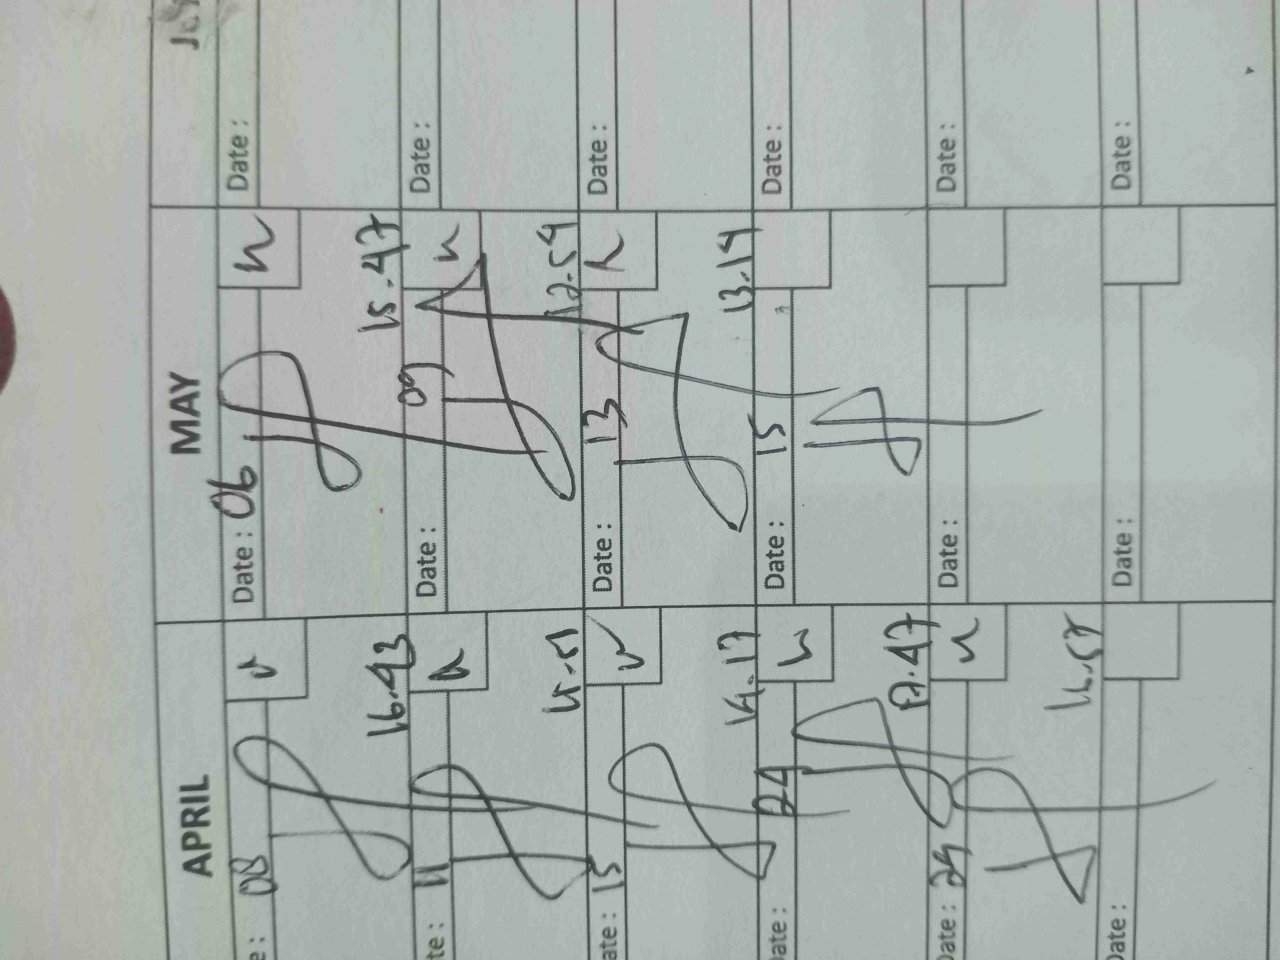 APRIL MAY
e : 08 Date : 06 Date :
16.43 15.47
te : 11 Date : 09 Date :
12.54
ate : 15 Date : 13 Date :
14.17 13.14
Date : 24 Date : 15 Date :
17.47
Date : 29 Date : Date :
16.57
Date : Date : Date :